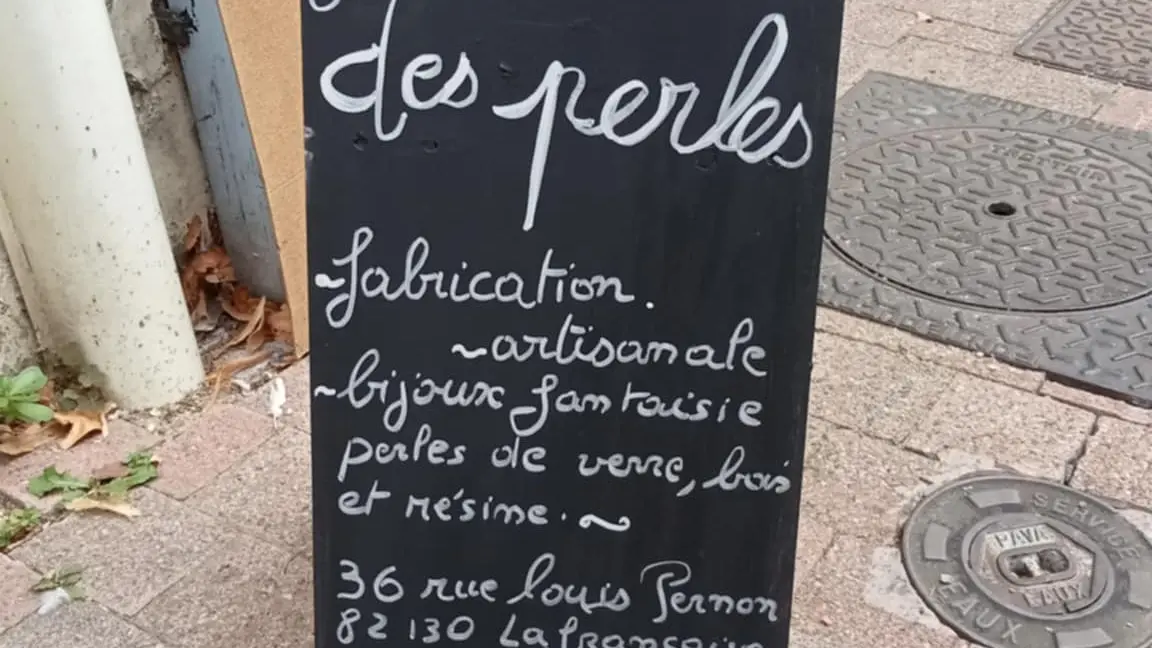 des perles
fabrication.
~artisanale
~bijoux fantaisie
perles de verre, bois
et résine.~
36 rue louis Pernon
82 130 Lafrançaise
TROTTOIR
SERVICE
PAVA
EAUX
EAUX